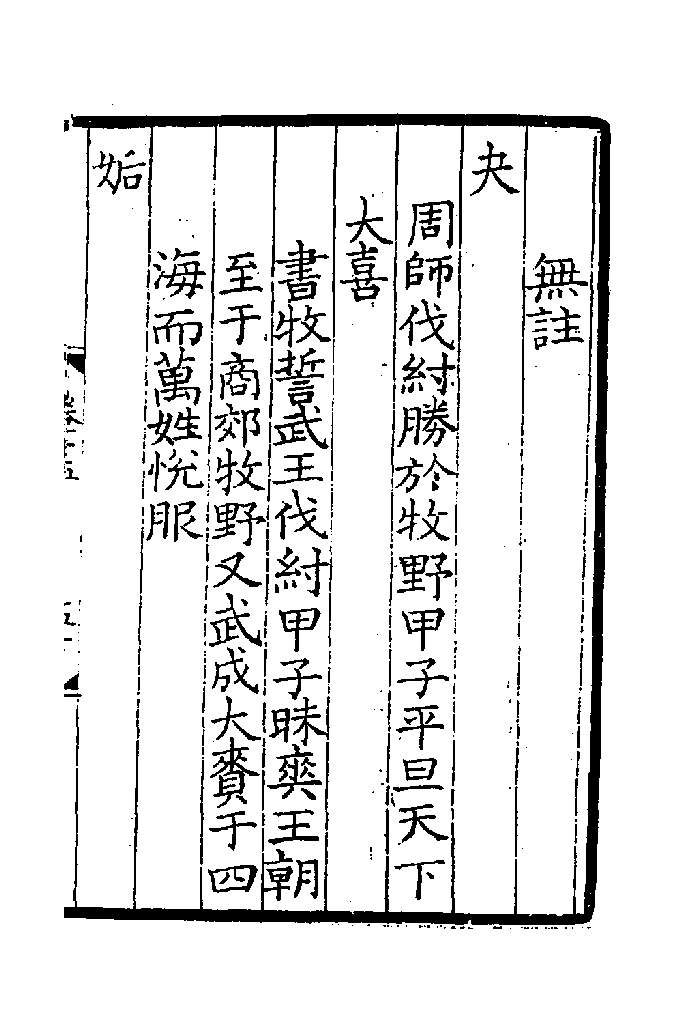 無註
夬
周師伐紂勝於牧野甲子平旦天下
大喜
書牧誓武王伐紂甲子昧爽王朝
至于商郊牧野又武成大賚于四
海而萬姓悅服
姤